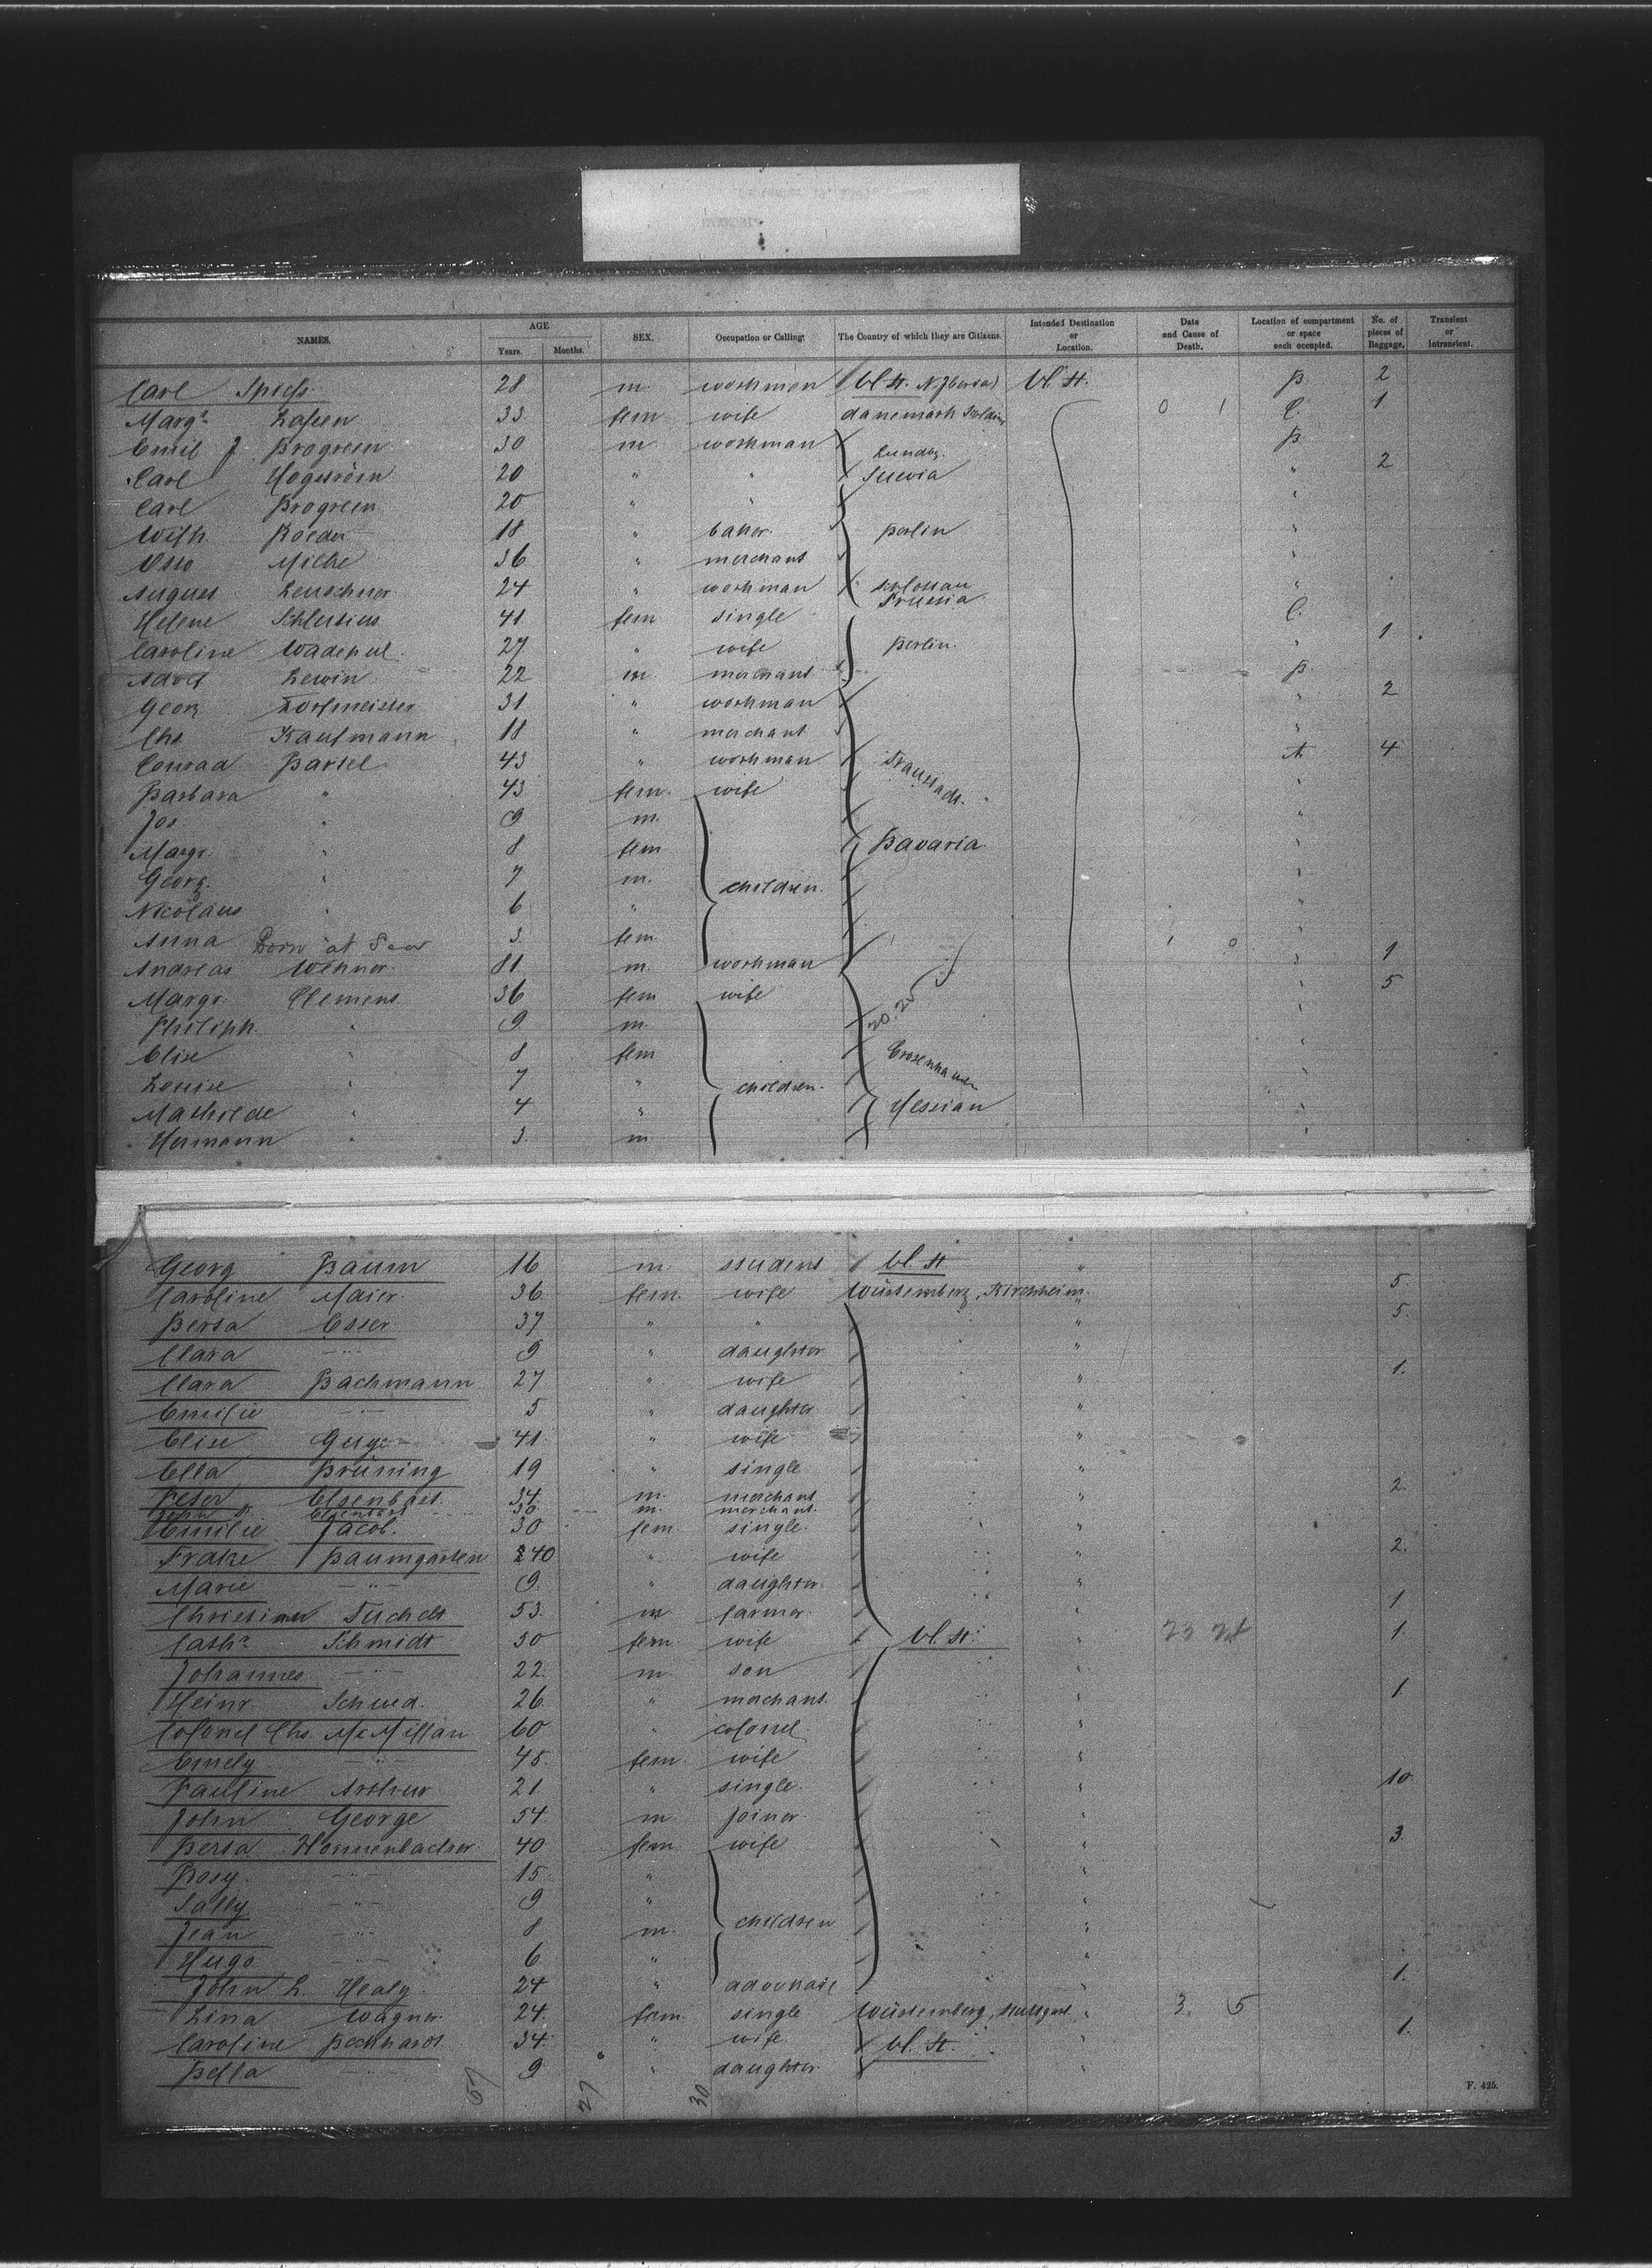 NAMES. AGE Years. Months. SEX. Occupation or Calling. The Country of which they are Citizens. Intended Destination or Location. Date and Cause of Death. Location of compartment or space each occupied. No. of pieces of Baggage. Transient or intransient.
Carl Spiess 28 m. workman U. St. U. St. B. 2
Margt. 33 fem wife danemark 0 1 C. 1
Emil J. Brogreen 30 m workman B.
Carl Hogström 20 " " Suevia " 2
Carl Brogreen 20 " " "
Wilh. Roeder 18 " baker Berlin "
Otto Milke 36 " merchant "
August Leuschner 24 " workman Prussia "
Helene Schlutius 41 fem single C.
Caroline Wadepul 27 " wife Berlin " 1
Adolf Lewin 22 m merchant B.
Georg Dorfmeister 31 " workman " 2
Chs. Kaufmann 18 " merchant "
Conrad Bartel 43 " workman St. 4
Barbara " 43 fem. wife "
Jos. " 9 m. "
Margr. " 8 fem Bavaria "
Georg. " 7 m. children. "
Nicolaus " 6 " "
Anna Born at Sea 3 fem. 1 0 "
Andreas Wenner 81 m. workman " 1
Margr. Clemens 36 fem wife 20.20 " 5
Philiph " 9 m. "
Elise " 8 fem "
Louise " 7 " children. "
Mathilde " 4 " Hessian "
Hermann " 3 m "
Georg Baum 16 m. student U. St. "
Caroline Maier 36 fem. wife Würtemberg, Kirchheim " 5.
Berta Esser 37 " " " 5.
Clara " 9 " daughter "
Clara Bachmann 27 " wife " 1.
Emilie " 5 " daughter "
Elise 41 " wife "
Ella Brüning 19 " single "
Peter Elsenbast 34 m. merchant " 2.
John P. Elsenbast 30 m. merchant.
Emilie Jacob. 30 fem single. "
Fradke Baumgarten 40 " wife " 2.
Marie " 9 " daughter. "
Christian Tuchelt 53 m farmer " 1
Cathr. Schmidt 50 fem. wife U. St. " 23 1.
Johannes " 22 m. son "
Heinr. Schued. 26 " merchant. " 1.
Colonel Chs. McMillan 60 " colonel "
Emely " 45 fem. wife "
Pauline Arthur 21 " single. " 10
John George 54 m. joiner. "
Berta Honnenbacher 40 fem. wife " 3.
Rosy " 15 " "
Sally " 9 " "
Jean " 8 m. children "
Hugo " 6 " "
John L. Healy 24 " advokate " 1.
Lina Wagner 24 fem. single Würtemberg, Stuttgart " 3. 5
Caroline Bechhardt 34 " wife. U. St. " 1.
Bella " 9 " daughter. "
57 27 30
F. 425.